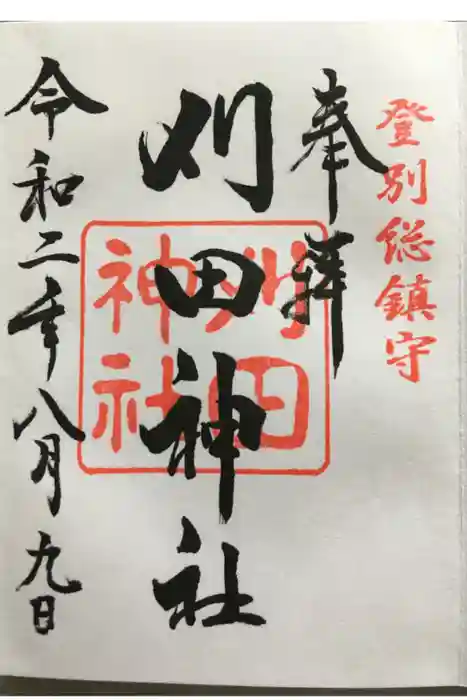 登別総鎮守
奉拝
刈田神社
刈田
神社
令和二年八月九日